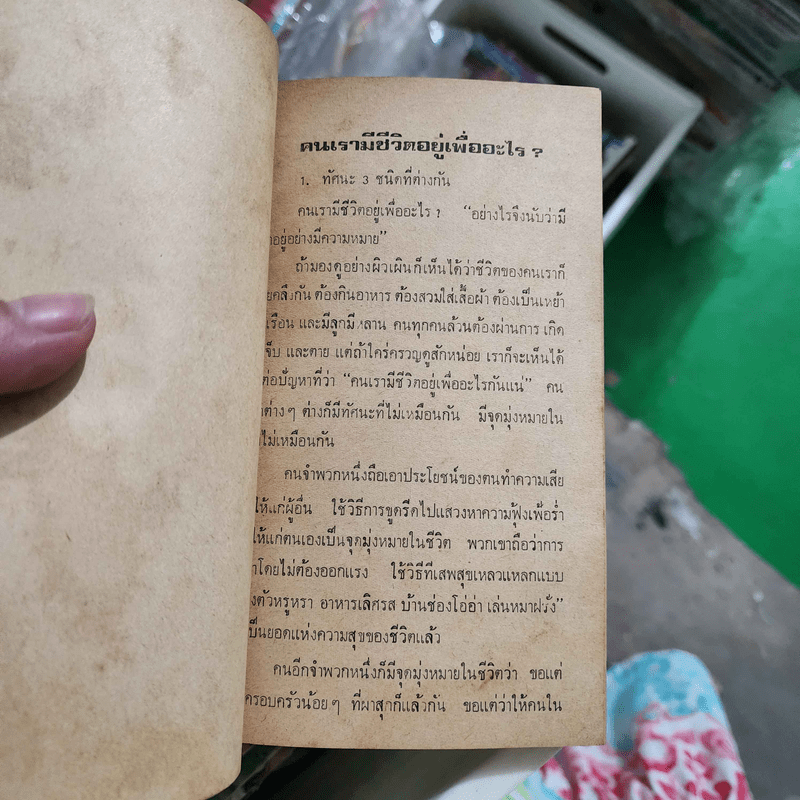 คนเรามีชีวิตอยู่เพื่ออะไร ?
1. ทัศนะ 3 ชนิดที่ต่างกัน
คนเรามีชีวิตอยู่เพื่ออะไร ? “อย่างไรจึงนับว่ามี
อยู่อย่างมีความหมาย”
ถ้ามองดูอย่างผิวเผินก็เห็นได้ว่าชีวิตของคนเราก็
ยคลึงกัน ต้องกินอาหาร ต้องสวมใส่เสื้อผ้า ต้องเป็นเหย้า
เรือน และมีลูกมีหลาน คนทุกคนล้วนต้องผ่านการ เกิด
จ็บ และตาย แต่ถ้าใคร่ครวญดูสักหน่อย เราก็จะเห็นได้
ต่อปัญหาที่ว่า “คนเรามีชีวิตอยู่เพื่ออะไรกันแน่” คน
ต่างๆ ต่างก็มีทัศนะที่ไม่เหมือนกัน มีจุดมุ่งหมายใน
ไม่เหมือนกัน
คนจำพวกหนึ่งถือเอาประโยชน์ของตนทำความเสีย
ให้แก่ผู้อื่น ใช้วิธีการขูดรีดไปแสวงหาความฟุ้งเฟ้อร่ำ
ให้แก่ตนเองเป็นจุดมุ่งหมายในชีวิต พวกเขาถือว่าการ
โดยไม่ต้องออกแรง ใช้วิธีที่เสพสุขเหลวแหลกแบบ
งตัวหรูหรา อาหารเลิศรส บ้านช่องโอ่อ่า เล่นหมาฝรั่ง”
ป็นยอดแห่งความสุขของชีวิตแล้ว
คนอีกจำพวกหนึ่งก็มีจุดมุ่งหมายในชีวิตว่า ขอแต่
ครอบครัวน้อยๆ ที่ผาสุกก็แล้วกัน ขอแต่ว่าให้คนใน